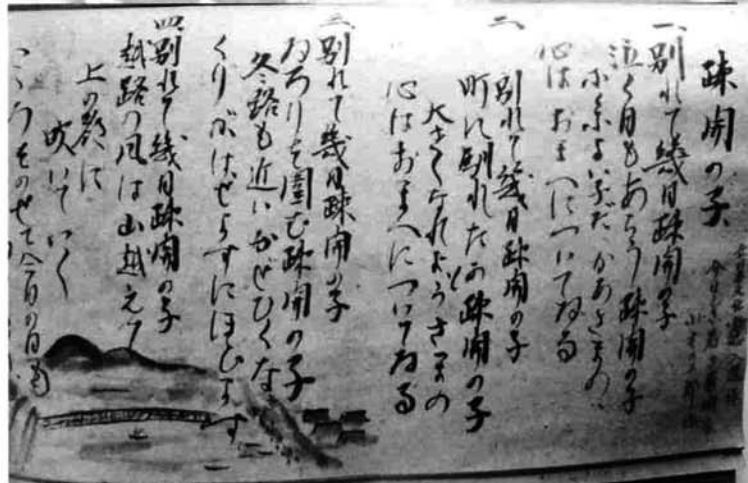 疎開の子
一、別れて幾日疎開の子
泣く日もあらう疎開の子
よい子だ、かあさまの、
心はおまへについてゐる
二、別れて幾日疎開の子
町に馴れたか疎開の子
大きくなれよとうさまの
心はおまへについてゐる
三、別れて幾日疎開の子
ゐろりを囲む疎開の子
冬も近いかぜひくな
くりがはぜ
四、別れて幾日疎開の子
越路の風は山越えて
上の
吹いていく
こころをのせて今日の日も